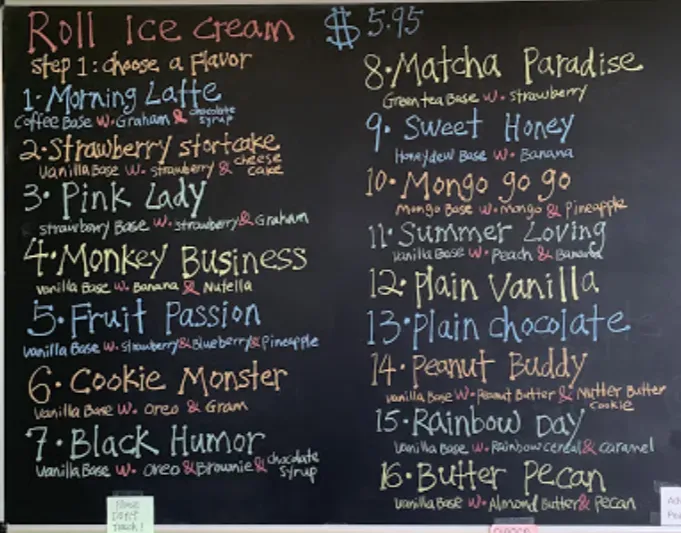 Roll Ice cream $5.95
Step 1: choose a Flavor
1. Morning Latte
Coffee Base w. Graham & chocolate syrup
2. Strawberry stortcake
vanilla Base w. strawberry & cheese cake
3. Pink Lady
strawberry Base w. strawberry & Graham
4. Monkey Business
vanilla Base w. Banana & Nutella
5. Fruit Passion
vanilla Base w. strawberry & Blueberry & Pineapple
6. Cookie Monster
vanilla Base w. oreo & Gram
7. Black Humor
vanilla Base w. oreo & Brownie & chocolate syrup
8. Matcha Paradise
Green tea Base w. strawberry
9. Sweet Honey
Honeydew Base w. Banana
10. Mongo go go
Mongo Base w. mongo & Pineapple
11. Summer Loving
vanilla Base w. Peach & Banana
12. Plain Vanilla
13. Plain chocolate
14. Peanut Buddy
vanilla Base w. Peanut Butter & Nutter Butter cookie
15. Rainbow Day
vanilla Base w. Rainbow cereal & caramel
16. Butter Pecan
vanilla Base w. Almond Butter & Pecan
Please
Don't
Touch!